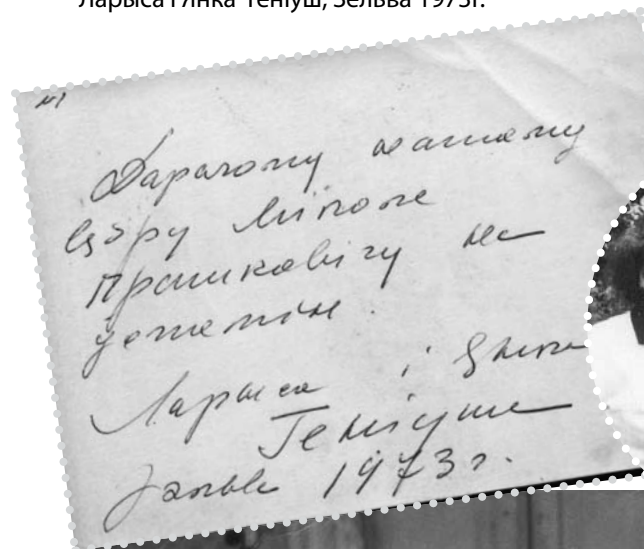 Ларыса і Янка Геніуш, Зельва 1973г.
№1
Дарагому нашаму
сябру Міколе
Прашкавічу на
ўспамін.
Ларыса і Янка
Геніюш
Зэльва 1973 г.